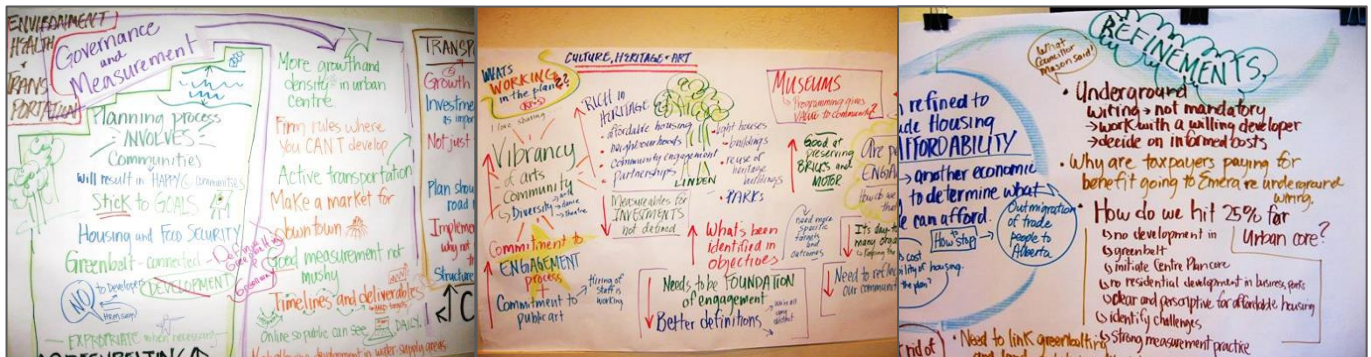 ENVIRONMENT
HEALTH
+
TRANS
PORTATION
Governance
and
Measurement
Planning process
INVOLVES
Communities
will result in HAPPY communities
Stick to GOALS
Housing and Food SECURITY
Greenbelt - connected
NO to Developer
DEVELOPMENT
EXPROPRIATE when necessary
More growth and
density in urban
centre.
Firm rules where
you CAN'T develop
Active transportation
Make a market for
downtown
Good measurement not
mushy
Timelines and deliverables
Online so public can see DAILY.
development in water supply areas
TRANSP
Growth
Investme
is impor
Not just
Plan shou
road
Impleme
why not
Structure
WHATS
WORKING
in the plan?
CULTURE, HERITAGE + ART
I love sharing
Vibrancy
of arts
community
Diversity
dance
theatre
Commitment to
ENGAGEMENT
process
Commitment to
public art
hiring of
staff is
working
RICH IN
HERITAGE
affordable housing
neighbourhoods
community engagement
partnerships
LINDEN
light houses
buildings
re use of
heritage
buildings
PARKS
Measurables for
INVESTMENTS
not defined
What's been
identified in
objectives
Needs to be FOUNDATION
of engagement
Better definitions
MUSEUMS
Programming gives
VALUE to community
Good at
preserving
BRICKS and
MOTOR
need more
specific
targets
and
outcomes
Are pe
ENGA
It's day to
many orga
Need to refin
our communi
refined to
de Housing
AFFORDABILITY
another economic
to determine what
e can afford.
How stop
Outmigration
of trade
people to
Alberta
cost
bility of housing.
the plan?
REFINEMENTS,
What
Councillor
Mason said!
• Underground
wiring → not mandatory
→ work with a willing developer
→ decide on informed costs
• Why are taxpayers paying for
benefit going to Emera re underground
wiring.
• How do we hit 25% for
Urban core?
no development in
greenbelt
initiate Centre Plan core
no residential development in business parks
clear and perscriptive for affordable housing
identify challenges
strong measurement practice
• Need to link greenbelting